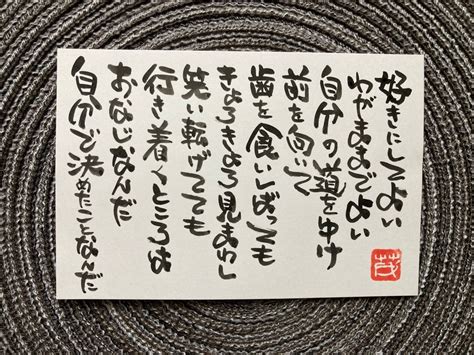 好きにしてよい
わがままでよい
自分の道をゆけ
前を向いて
歯を食いしばっても
きょろきょろ見まわし
笑い転げてても
行き着くところは
おなじなんだ
自分で決めたことなんだ